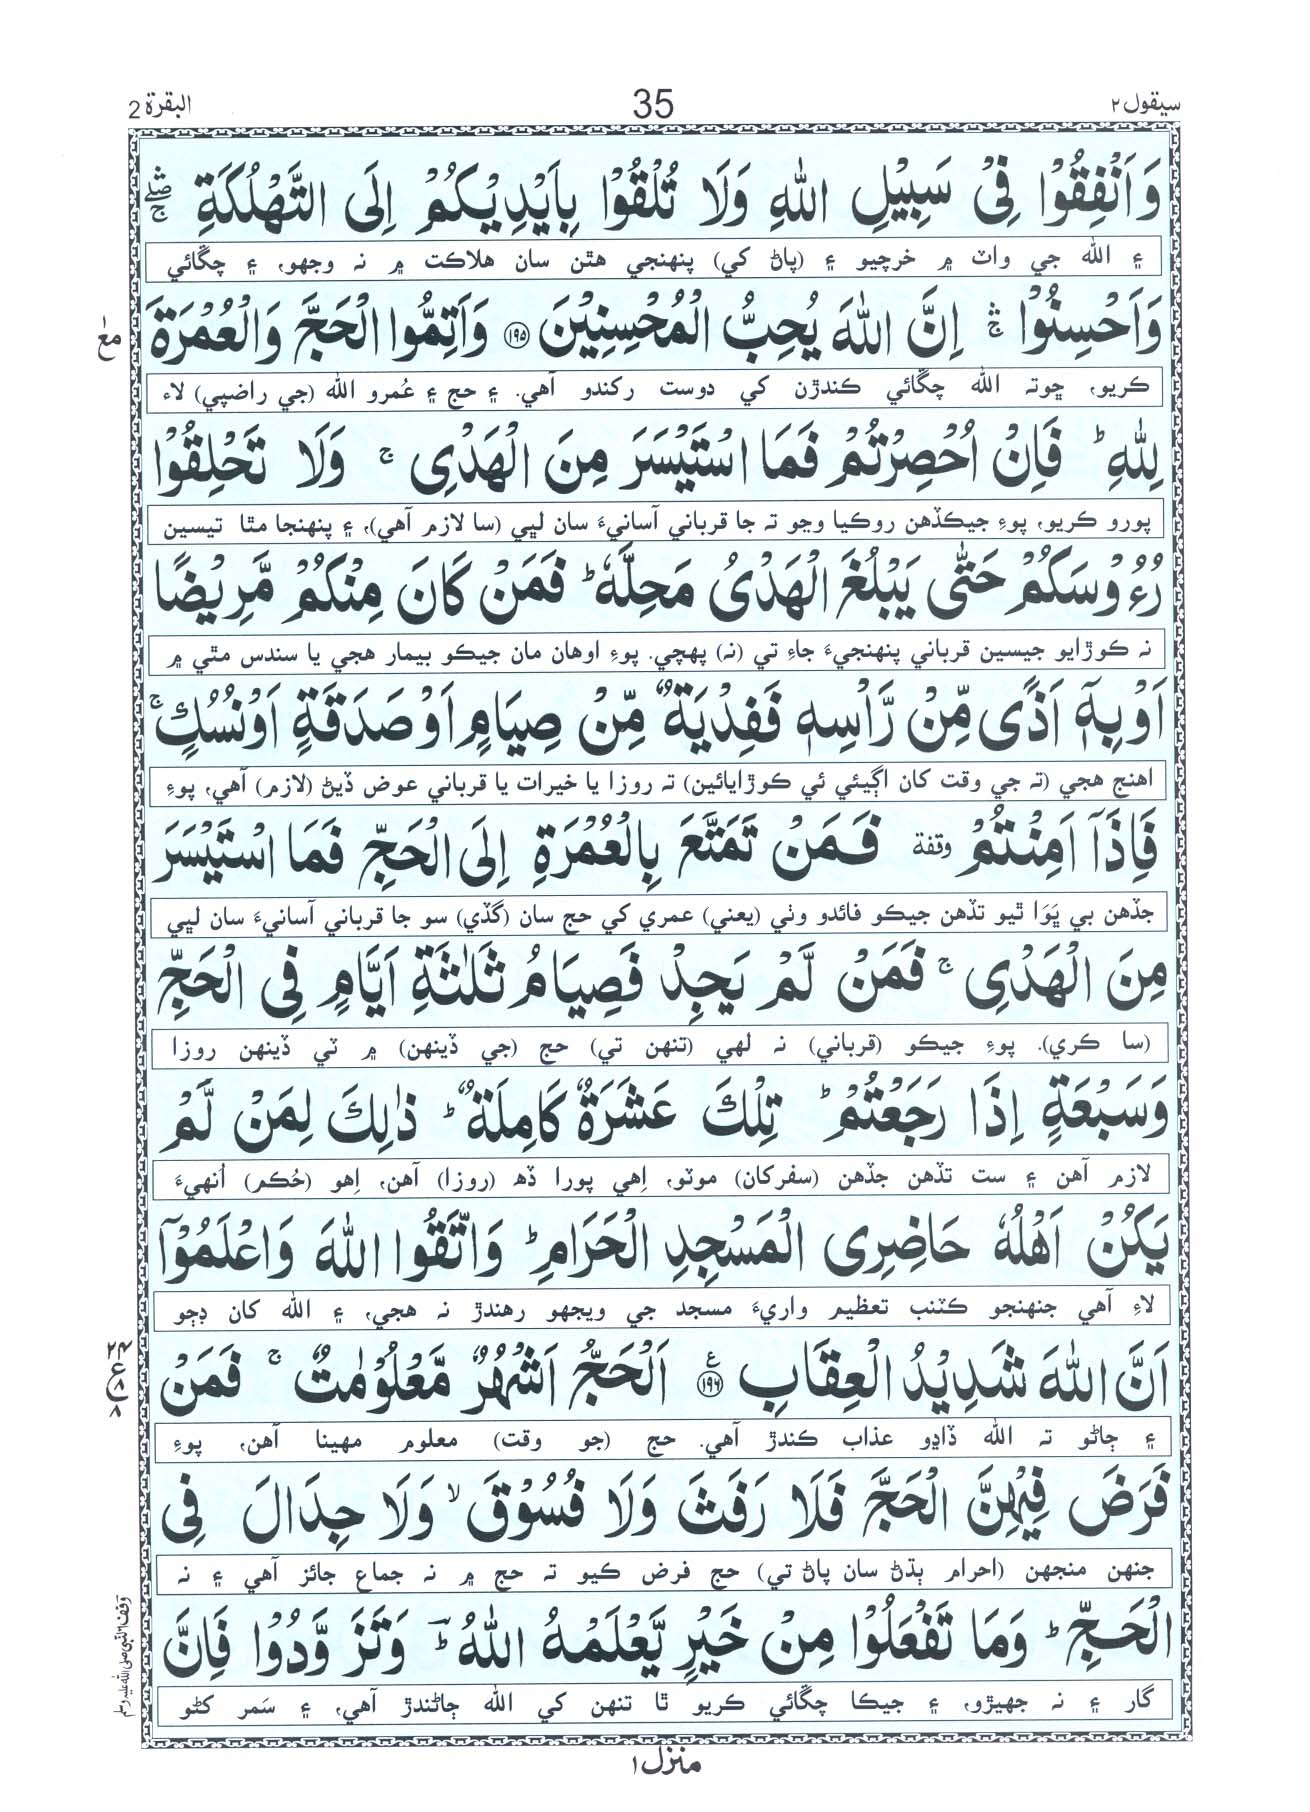 سيقول ٢
35
البقرة 2
وَاَنْفِقُوْا فِیْ سَبِیْلِ اللّٰهِ وَلَا تُلْقُوْا بِاَیْدِیْكُمْ اِلَی التَّهْلُكَةِ ۛۖۚ
۽ الله جي واٽ ۾ خرچيو ۽ (پاڻ کي) پنهنجي هٿن سان هلاڪت ۾ نہ وجهو، ۽ چڱائي
وَاَحْسِنُوْا ۛۚ اِنَّ اللّٰهَ یُحِبُّ الْمُحْسِنِیْنَ ﴿۱۹۵﴾ وَاَتِمُّوا الْحَجَّ وَالْعُمْرَةَ
مع ١
ڪريو، ڇوتہ الله چڱائي ڪندڙن کي دوست رکندو آهي. ۽ حج ۽ عُمرو الله (جي راضپي) لاء
لِلّٰهِ ؕ فَاِنْ اُحْصِرْتُمْ فَمَا اسْتَیْسَرَ مِنَ الْهَدْیِ ۚ وَلَا تَحْلِقُوْا
پورو ڪريو، پوءِ جيڪڏهن روڪيا وڃو تہ جا قرباني آسانيءَ سان لڀي (سا لازم آهي)، ۽ پنهنجا مٿا تيسين
رُءُوْسَكُمْ حَتّٰی یَبْلُغَ الْهَدْیُ مَحِلَّهٗ ؕ فَمَنْ كَانَ مِنْكُمْ مَّرِیْضًا
نہ ڪوڙايو جيسين قرباني پنهنجيءَ جاءِ تي (نہ) پهچي. پوءِ اوهان مان جيڪو بيمار هجي يا سندس مٿي ۾
اَوْ بِهٖۤ اَذًی مِّنْ رَّاْسِهٖ فَفِدْیَةٌ مِّنْ صِیَامٍ اَوْ صَدَقَةٍ اَوْ نُسُكٍ ۚ
اهنج هجي (تہ جي وقت کان اڳيئي ئي ڪوڙايائين) تہ روزا يا خيرات يا قرباني عوض ڏيڻ (لازم) آهي، پوءِ
فَاِذَاۤ اَمِنْتُمْ وقفة فَمَنْ تَمَتَّعَ بِالْعُمْرَةِ اِلَی الْحَجِّ فَمَا اسْتَیْسَرَ
جڏهن بي ڀَوَا ٿيو تڏهن جيڪو فائدو وٺي (يعني) عمري کي حج سان (گڏي) سو جا قرباني آسانيءَ سان لڀي
مِنَ الْهَدْیِ ۚ فَمَنْ لَّمْ یَجِدْ فَصِیَامُ ثَلٰثَةِ اَیَّامٍ فِی الْحَجِّ
(سا ڪري). پوءِ جيڪو (قرباني) نہ لهي (تنهن تي) حج (جي ڏينهن) ۾ ٽي ڏينهن روزا
وَسَبْعَةٍ اِذَا رَجَعْتُمْ ؕ تِلْكَ عَشَرَةٌ كَامِلَةٌ ؕ ذٰلِكَ لِمَنْ لَّمْ
لازم آهن ۽ ست تڏهن جڏهن (سفرکان) موٽو، اِهي پورا ڏھ (روزا) آهن، اِهو (حُڪم) اُنهيءَ
یَكُنْ اَهْلُهٗ حَاضِرِی الْمَسْجِدِ الْحَرَامِ ؕ وَاتَّقُوا اللّٰهَ وَاعْلَمُوْۤا
لاءِ آهي جنهنجو ڪٽنب تعظيم واريءَ مسجد جي ويجهو رهندڙ نہ هجي، ۽ الله کان ڊڄو
اَنَّ اللّٰهَ شَدِیْدُ الْعِقَابِ ﴿۱۹۶﴾ ع اَلْحَجُّ اَشْهُرٌ مَّعْلُوْمٰتٌ ۚ فَمَنْ
۲۴ ع ۸ ۸
۽ ڄاڻو تہ الله ڏاڍو عذاب ڪندڙ آهي. حج (جو وقت) معلوم مهينا آهن، پوءِ
فَرَضَ فِیْهِنَّ الْحَجَّ فَلَا رَفَثَ وَلَا فُسُوْقَ ۙ وَلَا جِدَالَ فِی
جنهن منجهن (احرام ٻڌڻ سان پاڻ تي) حج فرض ڪيو تہ حج ۾ نہ جماع جائز آهي ۽ نہ
الْحَجِّ ؕ وَمَا تَفْعَلُوْا مِنْ خَیْرٍ یَّعْلَمْهُ اللّٰهُ ؕؔ وَتَزَوَّدُوْا فَاِنَّ
وقف النبی صلی الله علیه وسلم
گار ۽ نہ جهيڙو، ۽ جيڪا چڱائي ڪريو ٿا تنهن کي الله ڄاڻندڙ آهي، ۽ سَمر کڻو
منزل ١